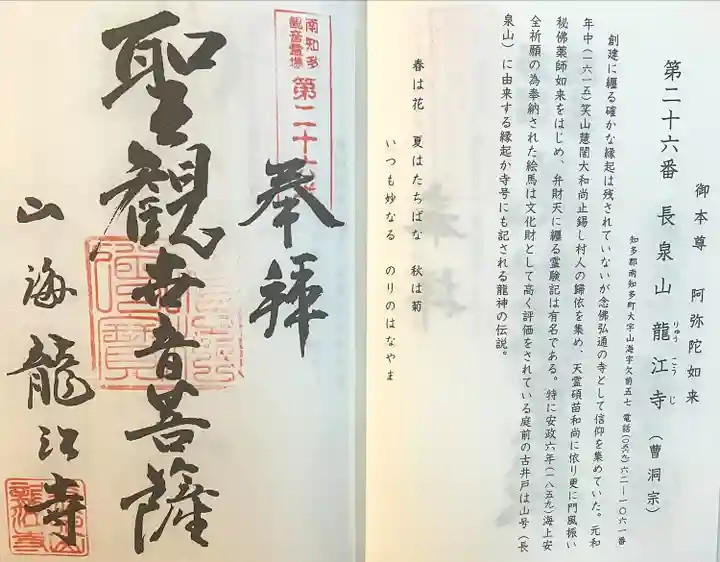 御本尊 阿弥陀如来
第二十六番 長泉山 龍江寺(曹洞宗)
りゅう こう じ
知多郡南知多町大字山海字欠前五七 電話(〇五六九)六二—一〇六一番
創建に纏る確かな縁起は残されていないが念佛弘通の寺として信仰を集めていた。元和
年中(一六一五)笑山慧誾大和尚止錫し村人の歸依を集め、天霊碩苗和尚に依り更に門風振い
秘佛薬師如来をはじめ、弁財天に纏る霊験記は有名である。特に安政六年(一八五九)海上安
全祈願の為奉納された絵馬は文化財として高く評価をされている庭前の古井戸は山号(長
泉山)に由来する縁起か寺号にも記される龍神の伝説。
春は花 夏はたちばな 秋は菊
いつも妙なる のりのはなやま
南知多
観音霊場
第二十六
奉拝
聖観世音菩薩
山海龍江寺